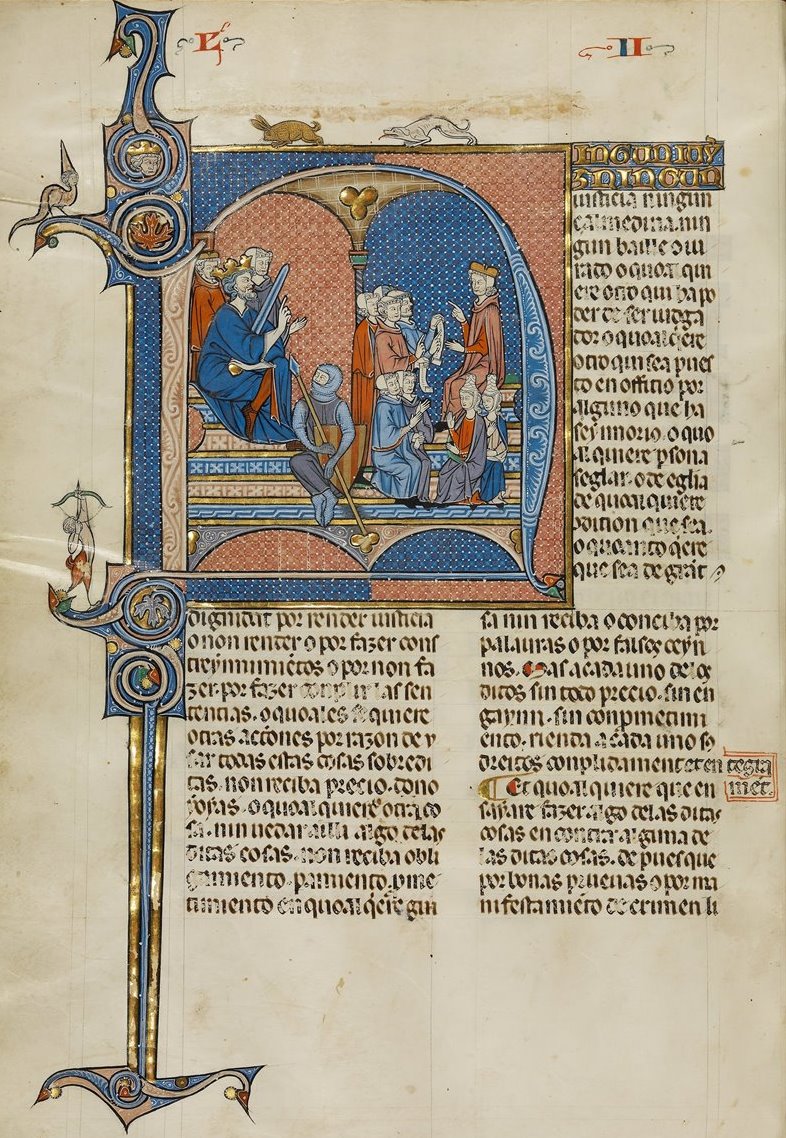 L II
INGUN IUY
Z NINGUN
iusticia ningun
çalmedina. nin
gun baille o iu
rado o quoal qui
ere otro qui ha po
der de ser iudga
dor o quoal qere
otro qui sea pues
to en officio por
alguno que ha
seynnorio. o quo
al quiere psona
seglar. o de eglia
de quoal quiere
que sea.
o quanto qere
que sea de grãt
dignidat por render iusticia
o non render o por fazer cons
treynnimiẽtos o por non fa
zer. por fazer las sen
tencias. o quoales se quiere
otras acciones por razon de v
sar todas estas cosas sobredi
tas. non reciba precio. dono
ioyas. o quoal quiere otra co
sa. nin uedar ailli algo delas
ditas cosas. non reciba obli
gamiento. paramiento. pme
timiento en quoal qere gui
sa nin reciba o conciba por
palauras o por falsos ceyn
nos. Mas a cada uno delos
ditos sin todo precio. sin en
ganno. sin conpmetimi
ento. rienda a cada uno so
dreitos conplidament et en tegra
mẽt.
Et quoal quiere que en
sayare fazer algo delas ditas
cosas en contra alguna de
las ditas cosas. depues que
por bonas prueuas o por ma
nifestamiẽto de crimen li